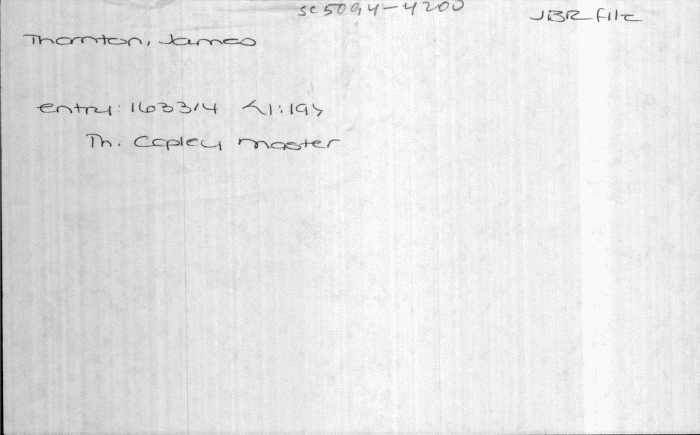 SC5094-4200
JBR file
Thornton, James
entry: 1633/4 <1:19>
Th. Copley master